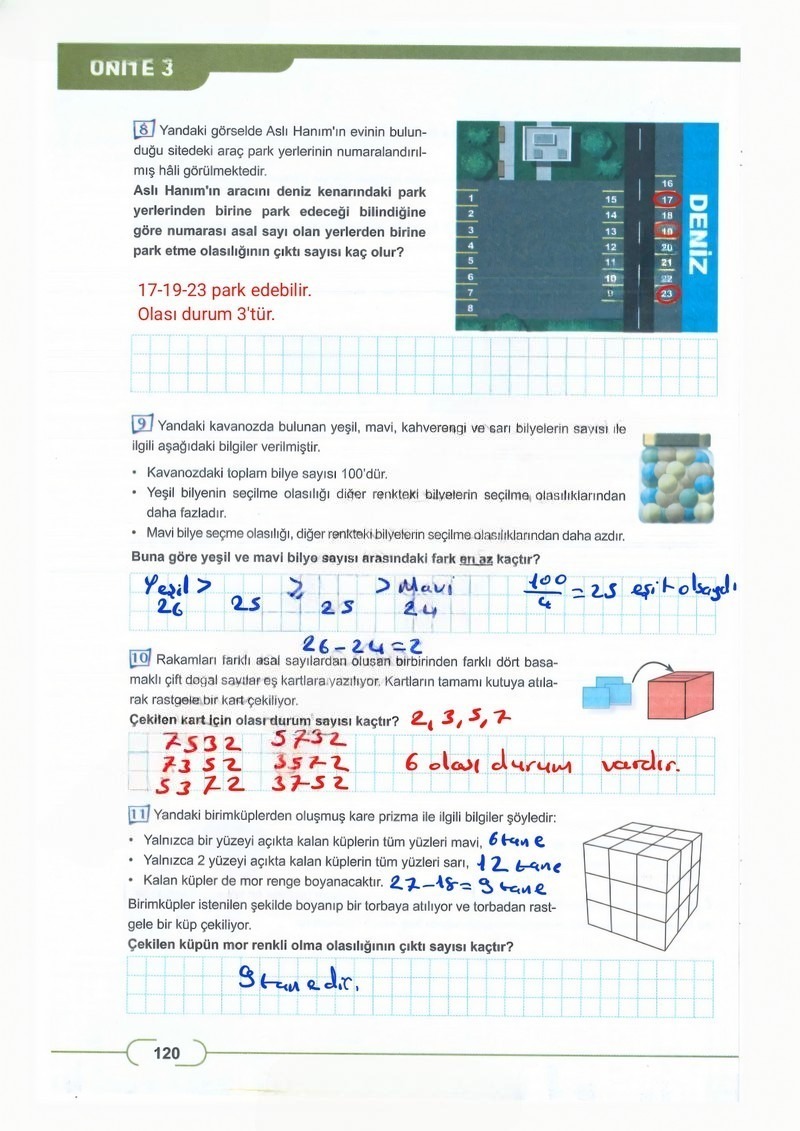 ÜNİTE 3
8 Yandaki görselde Aslı Hanım'ın evinin bulun-
duğu sitedeki araç park yerlerinin numaralandırıl-
mış hâli görülmektedir.
Aslı Hanım'ın aracını deniz kenarındaki park
yerlerinden birine park edeceği bilindiğine
göre numarası asal sayı olan yerlerden birine
park etme olasılığının çıktı sayısı kaç olur?
17-19-23 park edebilir.
Olası durum 3'tür.
1
2
3
4
5
6
7
8
15
14
13
12
11
10
9
16
17
18
19
20
21
22
23
DENİZ
9 Yandaki kavanozda bulunan yeşil, mavi, kahverengi ve sarı bilyelerin sayısı ile
ilgili aşağıdaki bilgiler verilmiştir.
• Kavanozdaki toplam bilye sayısı 100'dür.
• Yeşil bilyenin seçilme olasılığı diğer renkteki bilyelerin seçilme olasılıklarından
daha fazladır.
• Mavi bilye seçme olasılığı, diğer renkteki bilyelerin seçilme olasılıklarından daha azdır.
Buna göre yeşil ve mavi bilye sayısı arasındaki fark en az kaçtır?
Yeşil > ≥ > Mavi 100/4 = 25 eşit olsaydı
26 25 25 24
26-24=2
10 Rakamları farklı asal sayılardan oluşan birbirinden farklı dört basa-
maklı çift doğal sayılar eş kartlara yazılıyor. Kartların tamamı kutuya atıla-
rak rastgele bir kart çekiliyor.
Çekilen kart için olası durum sayısı kaçtır? 2, 3, 5, 7
7532 5732
7352 3572 6 olası durum vardır.
5372 3752
11 Yandaki birimküplerden oluşmuş kare prizma ile ilgili bilgiler şöyledir:
• Yalnızca bir yüzeyi açıkta kalan küplerin tüm yüzleri mavi, 6 tane
• Yalnızca 2 yüzeyi açıkta kalan küplerin tüm yüzleri sarı, 12 tane
• Kalan küpler de mor renge boyanacaktır. 27-18= 9 tane
Birimküpler istenilen şekilde boyanıp bir torbaya atılıyor ve torbadan rast-
gele bir küp çekiliyor.
Çekilen küpün mor renkli olma olasılığının çıktı sayısı kaçtır?
9 tanedir.
120